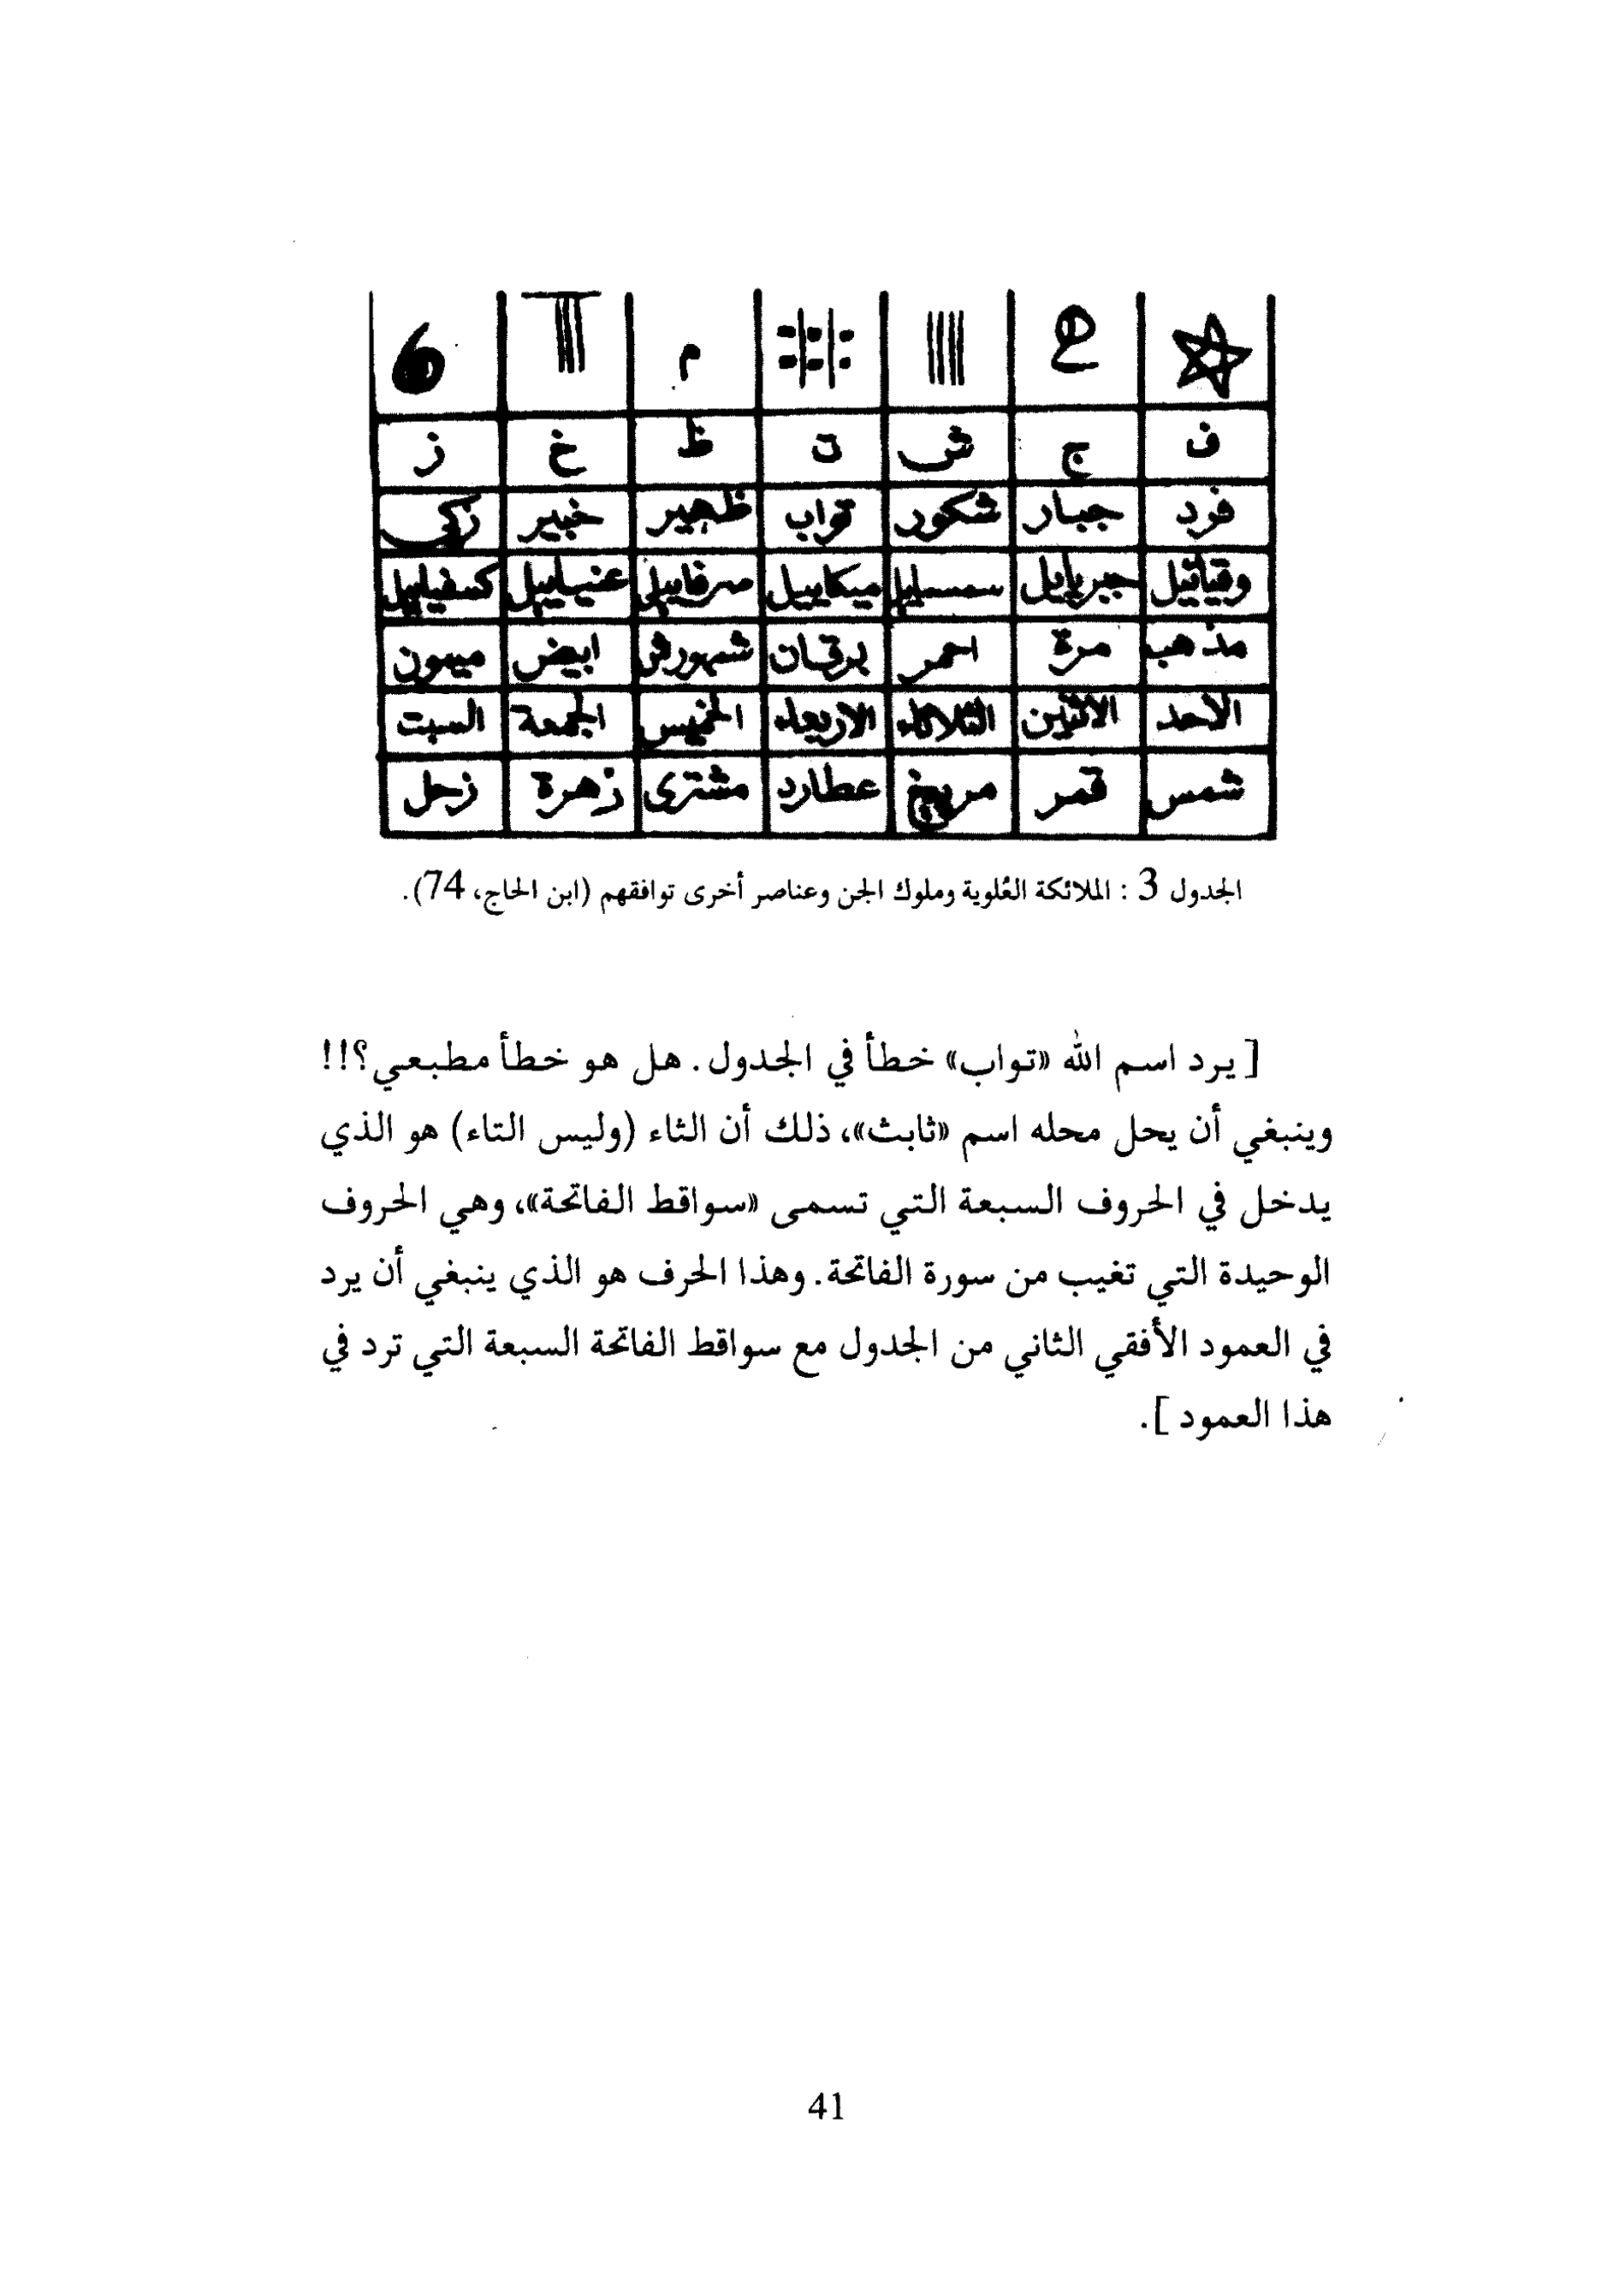 ف ج ش ت ظ خ ز
فرد جبار شكور تواب ظهير خبير زكي
وقيائيل جبريايل سمسماييل ميكاييل صرفاييل عنياييل كسفياييل
مذهب مرة احمر برقان شمهورش ابيض ميمون
الاحد الاثنين الثلاثاء الاربعاء الخميس الجمعة السبت
شمس قمر مريخ عطارد مشترى زهرة زحل
الجدول 3 : الملائكة العُلوية وملوك الجن وعناصر أخرى توافقهم (ابن الحاج، 74).
[يرد اسم الله «تواب» خطأ في الجدول. هل هو خطأ مطبعي؟!!
وينبغي أن يحل محله اسم «ثابث»، ذلك أن الثاء (وليس التاء) هو الذي
يدخل في الحروف السبعة التي تسمى «سواقط الفاتحة»، وهي الحروف
الوحيدة التي تغيب من سورة الفاتحة. وهذا الحرف هو الذي ينبغي أن يرد
في العمود الأفقي الثاني من الجدول مع سواقط الفاتحة السبعة التي ترد في
هذا العمود].
41